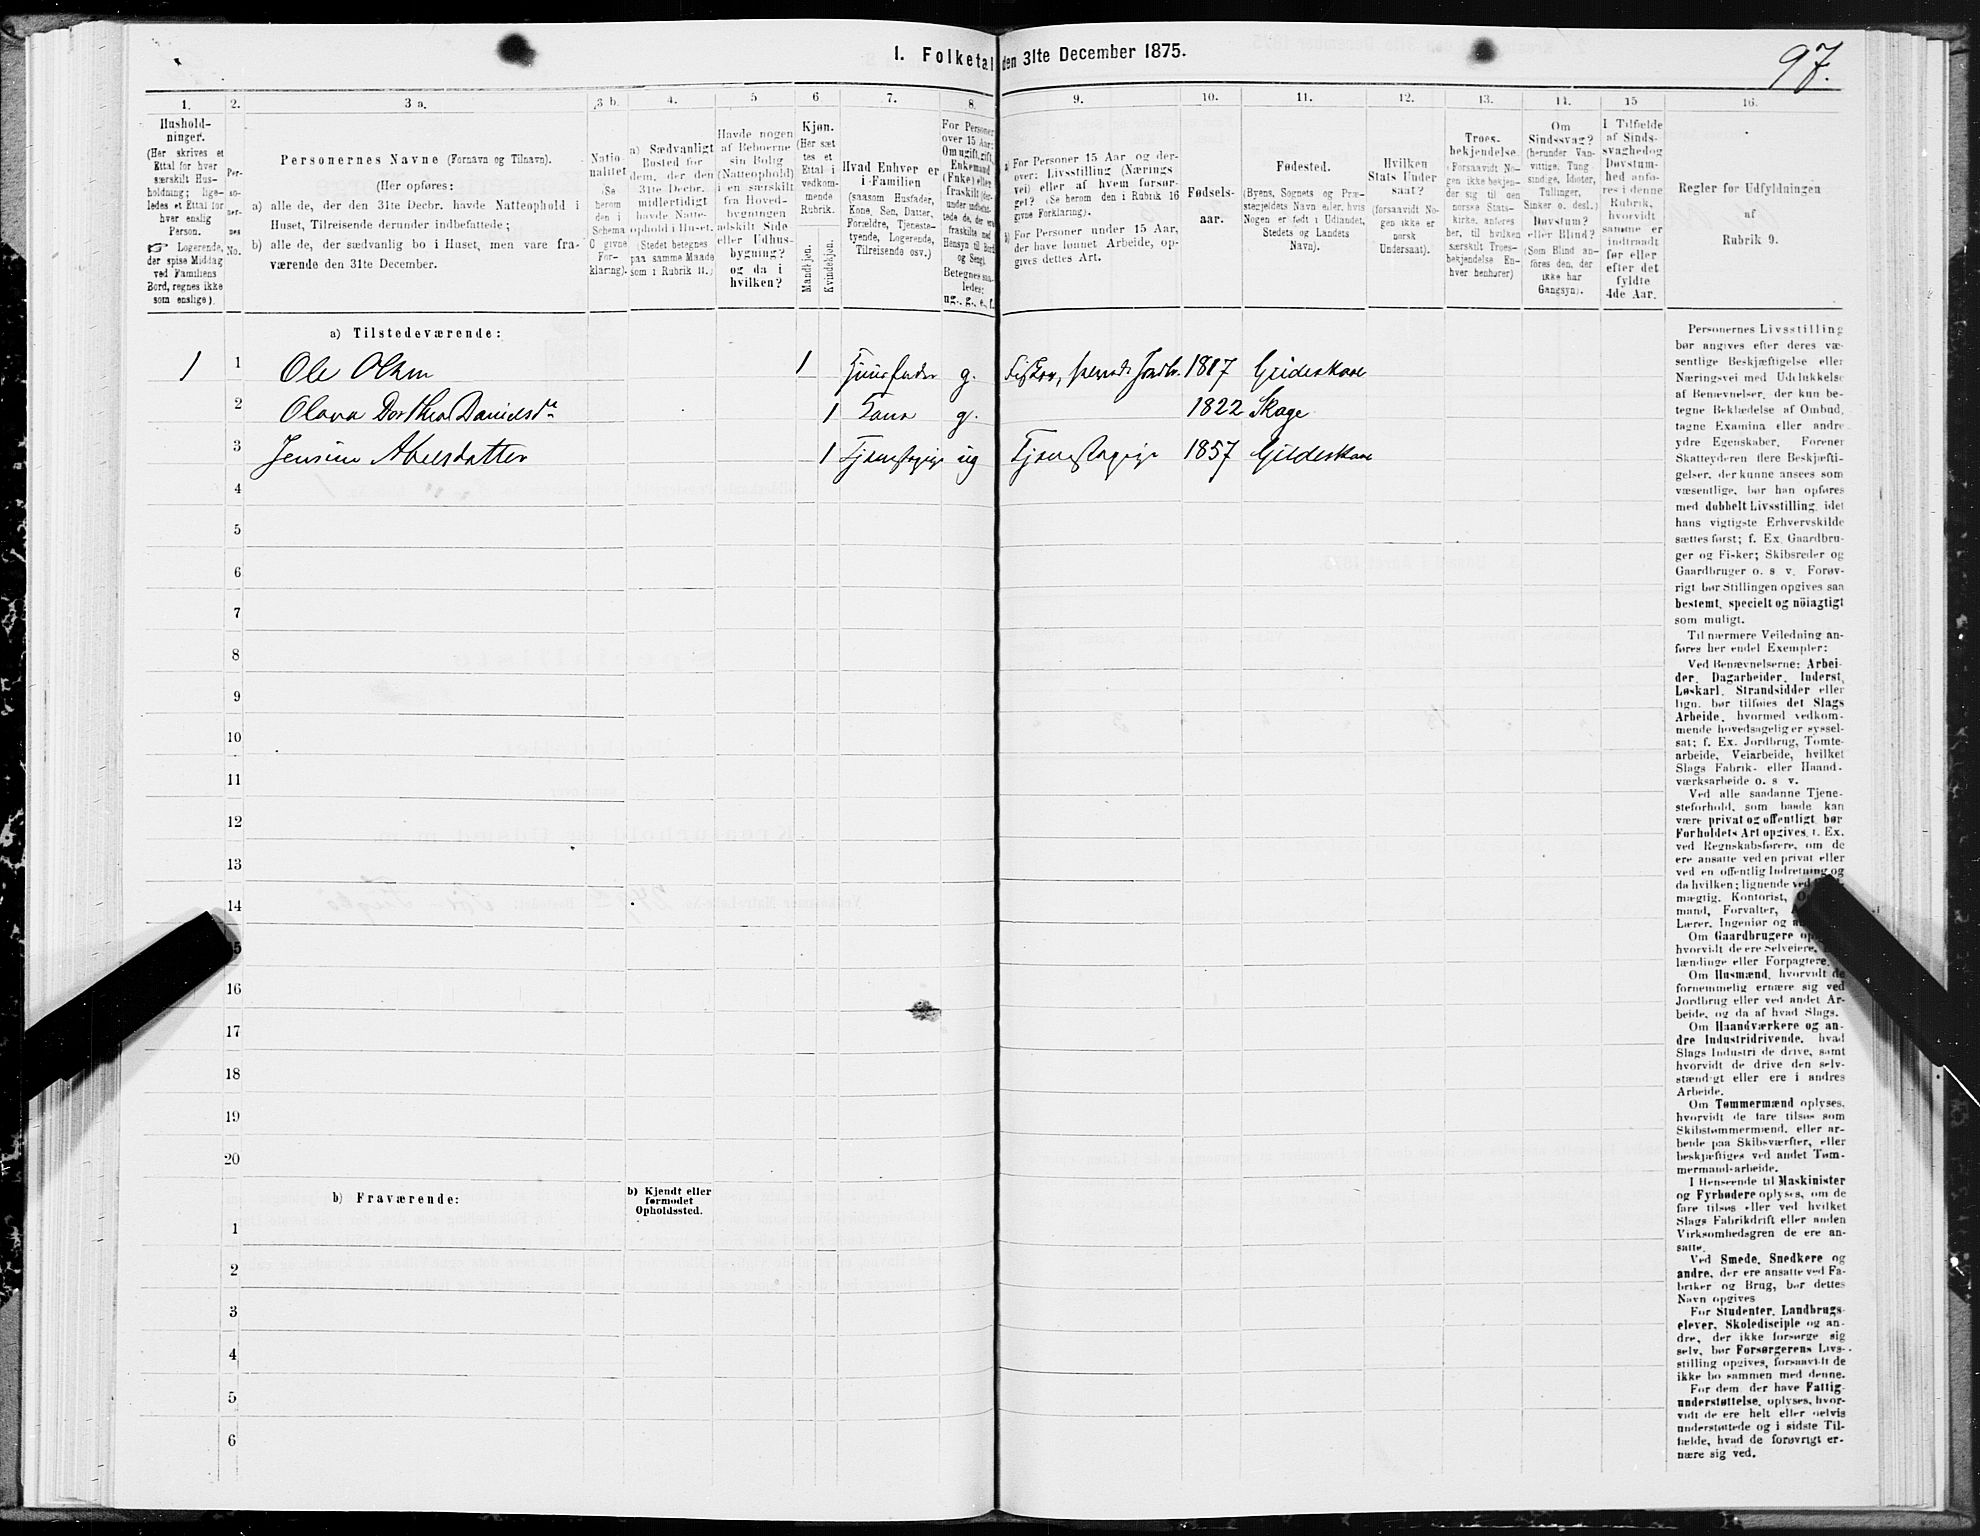 I. Folketal den 31te December 1875.
97.
1. 2. 3 a. 3 b. 4. 5 6 7. 8. 9. 10. 11. 12. 13. 14. 15 16.
Hushold-
ninger.
(Her skrives et
Ettal for hver
særskilt Hus-
holdning; lige-
ledes et Ettal for
hver enslig
Person.
☞ Logerende,
der spise Middag
ved Familiens
Bord, regnes ikke
som enslige).
Per-
so-
ner-
nes
No.
Personernes Navne (Fornavn og Tilnavn).
(Her opføres:
a) alle de, der den 31te Decbr. havde Natteophold i
Huset, Tilreisende derunder indbefattede;
b) alle de, der sædvanlig bo i Huset, men vare fra-
værende den 31te December.
Natio-
nalitet
(Se
herom
den i
Schema
C givne
For-
klaring).
a) Sædvanligt
Bosted for
dem, der den
31te Decbr.
midlertidigt
havde Natte-
ophold i Huset.
(Stedet betegnes
paa samme Maade
som i Rubrik 11.)
Havde nogen
af Beboerne
sin Bolig
(Natteophold)
i en særskilt
fra Hoved-
bygningen
adskilt Side
eller Udhus-
bygning?
og da i
hvilken?
Kjøn.
(Her sæt
tes et
Ettal i
vedkom-
mende
Rubrik.
Mandkjøn.
Kvindekjøn.
Hvad Enhver er
i Familien
(saasom Husfader,
Kone, Søn, Datter,
Forældre, Tjeneste-
tyende, Logerende,
Tilreisende osv.)
For Personer
over 15 Aar:
Om ugift, gift,
Enkemand
(Enke) eller
fraskilt (der-
under indbefat-
tede de, der ere
fraskilte med
Hensyn til Bord
og Seng).
Betegnes saa-
ledes:
ug., g., e., f.
a) For Personer 15 Aar og der-
over: Livsstilling (Nærings
vei) eller af hvem forsør
get? (Se herom den i Rubrik 16
givne Forklaring).
b) For Personer under 15 Aar,
der have lønnet Arbeide, op-
gives dettes Art.
Fødsels-
aar.
Fødested.
(Byens, Sognets og Præ-
stegjeldets Navn eller, hvis
Nogen er født i Udlandet,
Stedets og Landets
Navn).
Hvilken
Stats Under
saat?
(forsaavidt No-
gen ikke er
norsk
Undersaat).
Troes-
bekjendelse.
(Forsaavidt No-
gen ikke bekjen-
der sig til den
norske Stats-
kirke, anføres
her, til hvilken
særskilt Troes-
bekjendelse En-
hver henhører)
Om
Sindssvag?
(herunder Van-
vittige, Tung-
sindige, Idioter,
Tullinger,
Sinker o. desl.)
Døvstum?
eller Blind?
(Som Blind an-
føres den, der
ikke har
Gangsyn).
I Tilfælde
af Sinds-
svaghed og
Døvstum-
hed anfø-
res i denne
Rubrik,
hvorvidt
samme er
indtraadt
før eller
efter det
fyldte
4de Aar.
Regler for Udfyldningen
af
Rubrik 9.
a) Tilstedeværende:
1 1 Ole Olsen 1 Huusfader g. 1817 Gildeskaal
2 Olava Dorthea Danielsdr 1 Kone g. 1822 Skage
3 Jensine Abelsdatter 1 Tjenestepige ug Tjenestepige 1857 Gildeskaal
4
5
6
7
8
9
10
11
12
13
14
15
16
17
18
19
20
b) Fraværende:
b) Kjendt eller
formodet
Opholdssted.
1
2
3
4
5
6
Personernes Livsstilling
bør angives efter deres væ-
sentlige Beskjæftigelse eller
Næringsvei med Udelukkelse
af Benævnelser, der kun be-
tegne Beklædelse af Ombud,
tagne Examina eller andre
ydre Egenskaber. Forener
Skatteyderen flere Beskjæfti-
gelser, der kunne ansees som
væsentlige, bør han opføres
med dobbelt Livsstilling, idet
hans vigtigste Erhvervskilde
sættes først; f. Ex. Gaardbru-
ger og Fisker; Skibsreder og
Gaardbruger o. s v. Forøv-
rigt bør Stillingen opgives saa
bestemt, specielt og nöiagtigt
som muligt.
Til nærmere Veiledning an-
føres her endel Exempler:
Ved Benævnelserne: Arbei-
der, Dagarbeider, Inderst,
Løskarl, Strandsidder eller
lign. bør tilføies det Slags
Arbeide, hvormed vedkom-
mende hovedsagelig er syssel-
sat; f. Ex. Jordbrug, Tomte-
arbeide, Veiarbeide, hvilket
Slags Fabrik- eller Haand-
værksarbeide o. s v.
Ved alle saadanne Tjene-
steforhold, som baade kan
være privat og offentligt, bør
Forholdets Art opgives, f. Ex.
ved Regnskabsførere, om de
ere ansatte ved en privat eller
ved en offentlig Indretning og
da hvilken; lignende ved
mægtig, Kontorist,
mand, Forvalter,
Lærer, Ingeniør og
Om Gaardbrugere
hvorvidt de ere Selveiere,
lændinge eller Forpagtere.
Om Husmænd, hvorvidt de
fornemmelig ernære sig ved
Jordbrug eller ved andet Ar-
beide, og da af hvad Slags.
Om Haandværkere og an-
dre Industridrivende, hvad
Slags Industri de drive, samt
hvorvidt de drive den selv-
stændigt eller ere i andres
Arbeide.
Om Tømmermænd oplyses,
hvorvidt de fare tilsøs som
Skibstømmermænd, eller ar-
beide paa Skibsværfter, eller
beskjæftiges ved andet Tøm-
mermandsarbeide.
I Henseende til Maskinister
og Fyrbødere oplyses, om de
fare tilsøs eller ved hvilket
Slags Fabrikdrift eller anden
Virksomhedsgren de ere an-
satte.
Ved Smede, Snedkere og
andre, der ere ansatte ved Fa-
briker og Brug, bør dettes
Navn opgives
For Studenter, Landbrugs-
elever, Skoledisciple og an-
dre, der ikke forsørge sig
selv, bør Forsørgerens Livs-
stilling opgives, forsaavidt de
ikke bo sammen med denne.
For dem, der have Fattig-
understøttelse, oplyses, hvor-
vidt de ere helt eller delvis
understøttede og i sidste Til-
fælde, hvad de forøvrigt er-
nære sig ved.